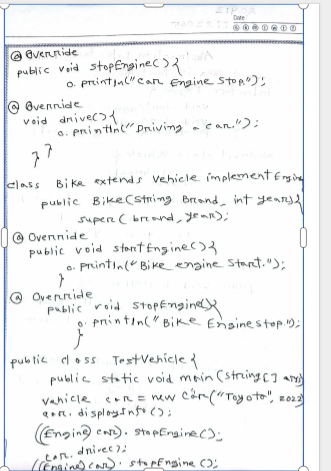 Date
@ Override
public void stopEngine() {
o. println("Car Engine Stop.");
@ Override
void drive() {
o. println("Driving a car.");
} }
class Bike extends Vehicle implement Engine
public Bike(String Brand, int year) {
super(brand, year);
@ Override
public void startEngine() {
o. println("Bike engine Start.");
}
@ Override
public void stopEngine() {
o. println("Bike Engine stop.");
}
public class TestVehicle {
public static void main (string[] args)
vehicle car = new Car("Toyota", 2022
car. displayInfo();
((Engine) car). stopEngine();
car. drive();
((Engine) car). stopEngine();